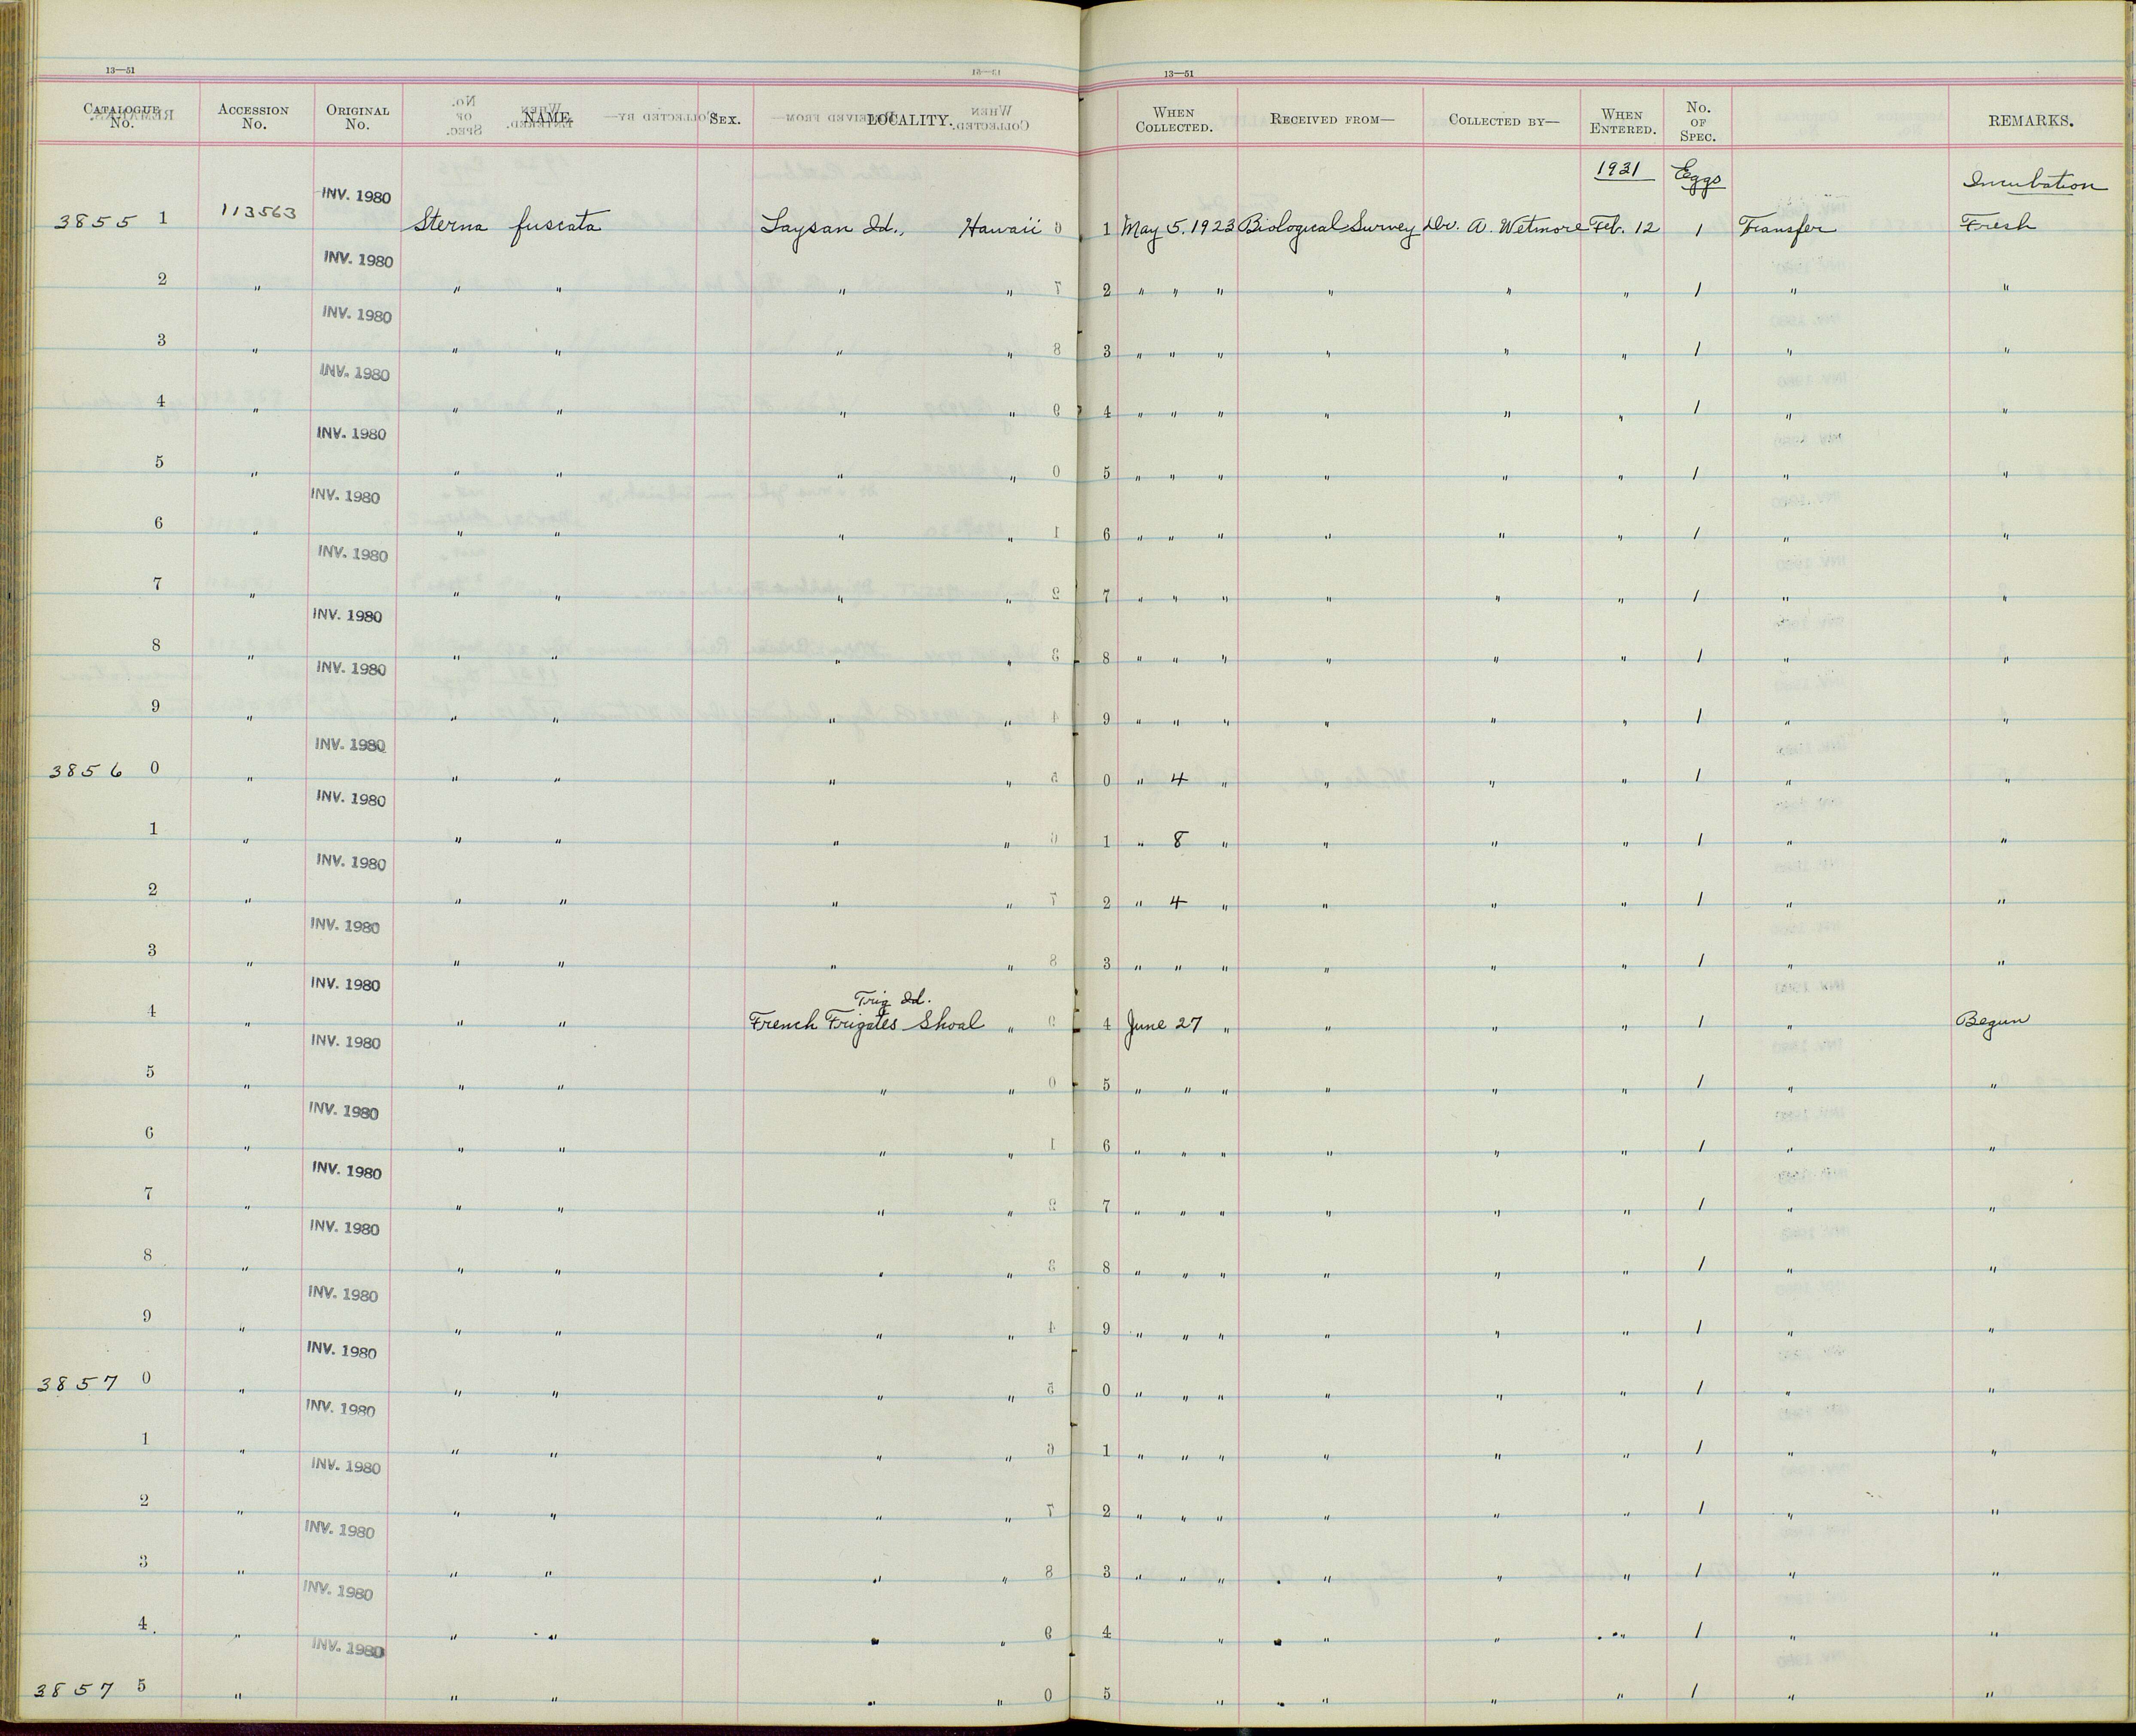 13—51 13—51
CATALOGUE No. ACCESSION No. ORIGINAL No. NAME. SEX. LOCALITY. WHEN COLLECTED. RECEIVED FROM— COLLECTED BY— WHEN ENTERED. No. OF SPEC. REMARKS.
1931 Eggs Incubation
INV. 1980
3855 1 113563 Sterna fuscata Laysan Id., Hawaii 1 May 5. 1923 Biological Survey Dr. A. Wetmore Feb. 12 1 Transfer Fresh
INV. 1980
2 " " " " " 2 " " " " " " 1 " "
INV. 1980
3 " " " " " 3 " " " " " " 1 " "
INV. 1980
4 " " " " " 4 " " " " " " 1 " "
INV. 1980
5 " " " " " 5 " " " " " " 1 " "
INV. 1980
6 " " " " " 6 " " " " " " 1 " "
INV. 1980
7 " " " " " 7 " " " " " " 1 " "
INV. 1980
8 " " " " " 8 " " " " " " 1 " "
INV. 1980
9 " " " " " 9 " " " " " " 1 " "
INV. 1980
3856 0 " " " " " 0 " 4 " " " " 1 " "
INV. 1980
1 " " " " " 1 " 8 " " " " 1 " "
INV. 1980
2 " " " " " 2 " 4 " " " " 1 " "
INV. 1980
3 " " " " " 3 " " " " " " 1 " "
INV. 1980 Trig Id.
4 " " " French Frigates Shoal " 4 June 27 " " " " 1 " Begun
INV. 1980
5 " " " " " 5 " " " " " " 1 " "
INV. 1980
6 " " " " " 6 " " " " " " 1 " "
INV. 1980
7 " " " " " 7 " " " " " " 1 " "
INV. 1980
8 " " " " " 8 " " " " " " 1 " "
INV. 1980
9 " " " " " 9 " " " " " " 1 " "
INV. 1980
3857 0 " " " " " 0 " " " " " " 1 " "
INV. 1980
1 " " " " " 1 " " " " " " 1 " "
INV. 1980
2 " " " " " 2 " " " " " " 1 " "
INV. 1980
3 " " " " " 3 " " " " " " 1 " "
INV. 1980
4 " " " " " 4 " " " " 1 " "
INV. 1980
3857 5 " " " " " 5 " " " " 1 " "